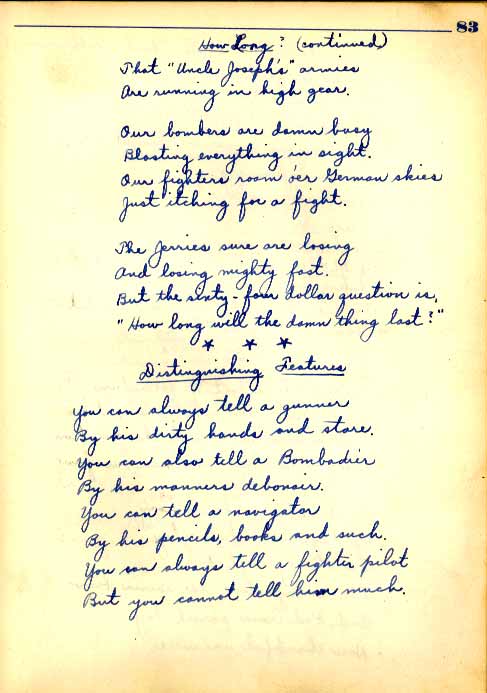 83
How Long? (continued)
That "Uncle Joseph's" armies
Are running in high gear.
Our bombers are damn busy
Blasting everything in sight.
Our fighters roam o'er German skies
Just itching for a fight.
The Jerries sure are losing
And losing mighty fast.
But the sixty-four dollar question is,
"How long will the damn thing last?"
* * *
Distinguishing Features
You can always tell a gunner
By his dirty hands and stare.
You can also tell a Bombadier
By his manners debonair.
You can tell a navigator
By his pencils, books and such.
You can always tell a fighter pilot
But you cannot tell him much.